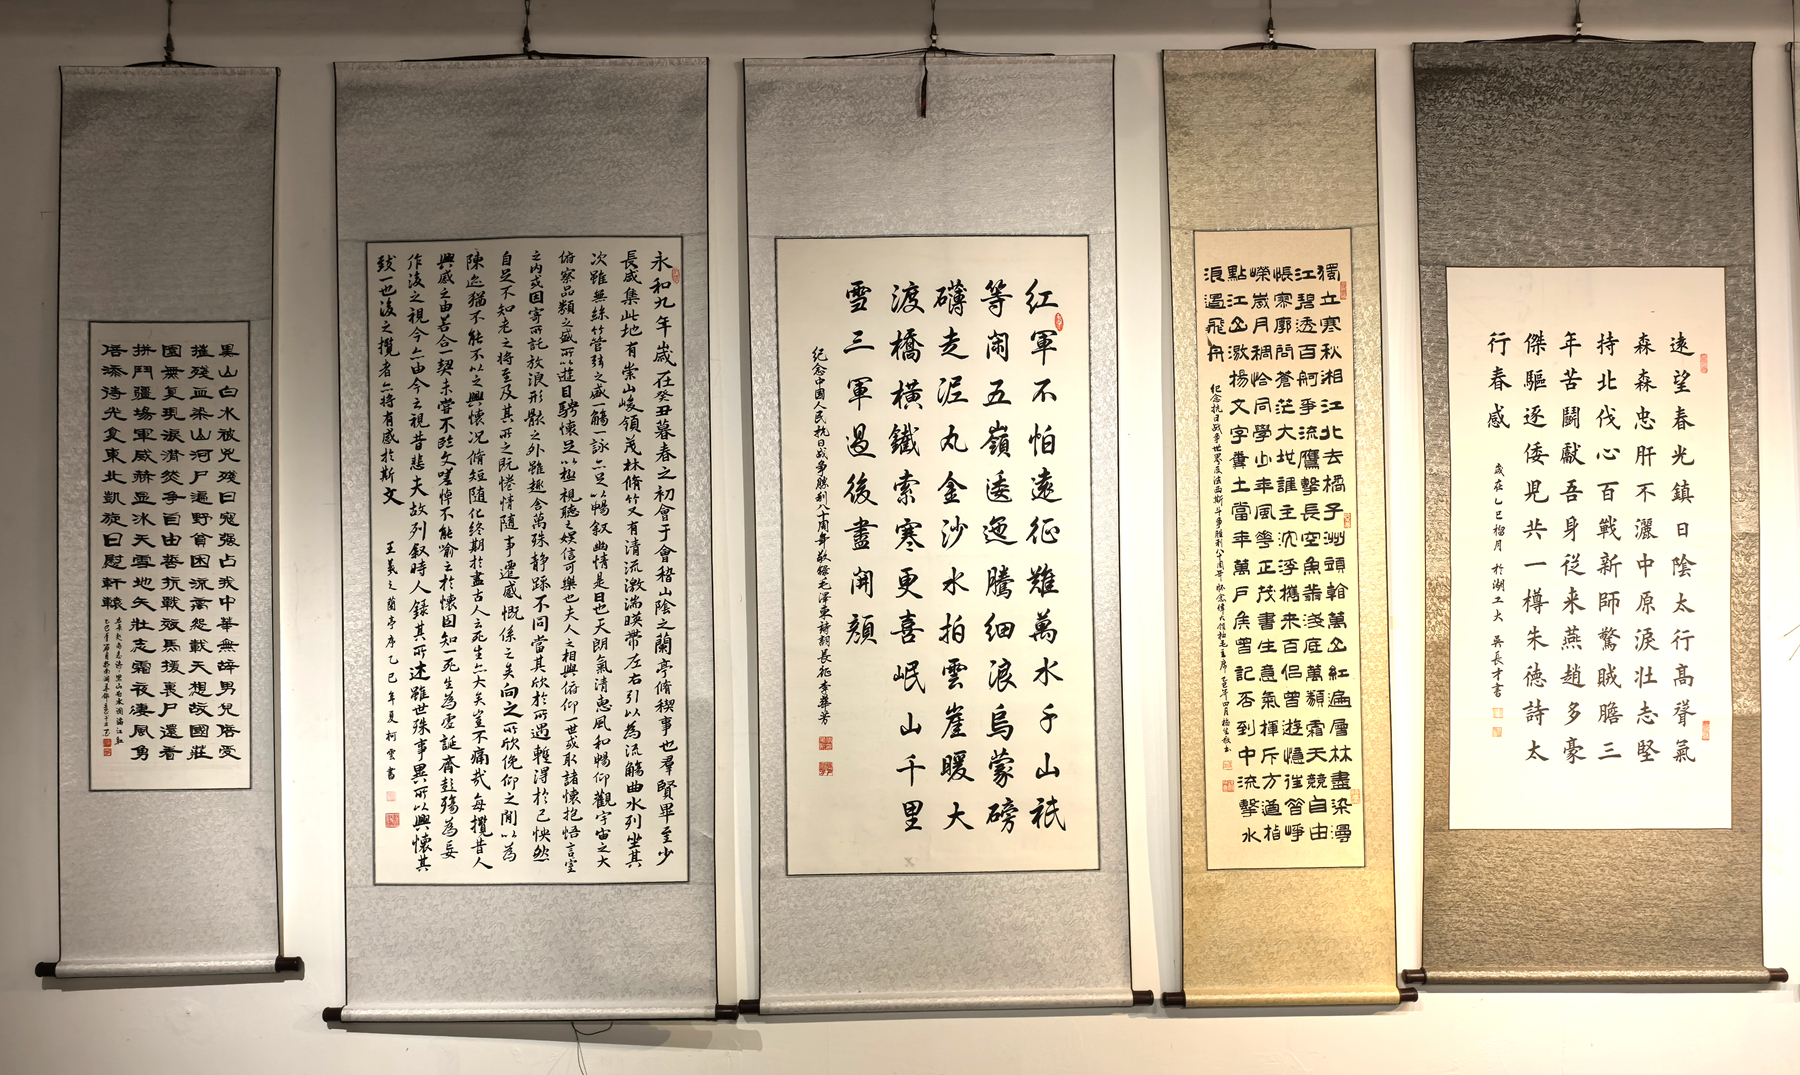 遠望春光鎮日陰太行高聳氣
森森忠肝不灑中原淚壯志堅
持北伐心百戰新師驚賊膽三
年苦鬪獻吾身從来燕趙多豪
傑驅逐倭児共一樽朱德詩太
行春感
歲在乙巳榴月於湖工大 吳長才書
獨立寒秋湘江北去橘子洲頭看萬山紅遍層林盡染漫
江碧透百舸爭流鷹擊長空魚翔淺底萬類霜天競自由
悵寥廓問蒼茫大地誰主沉浮攜來百侣曾遊憶往昔崢
嶸歲月稠恰同學少年風華正茂書生意氣揮斥方遒指
點江山激揚文字糞土當年萬戶矦曾記否到中流擊水
浪遏飛舟
紀念抗日战争世界反法西斯斗争勝利八十周年怀念偉大領袖毛主席乙巳年四月楊生敬书
紅軍不怕遠征難萬水千山祇
等閑五嶺逶迤騰細浪烏蒙磅
礴走泥丸金沙水拍雲崖暖大
渡橋橫鐵索寒更喜岷山千里
雪三軍過後盡開顏
紀念中國人民抗日战争勝利八十周年敬錄毛澤東詩詞長征李華芳
永和九年歲在癸丑暮春之初會于會稽山陰之蘭亭脩稧事也羣賢畢至少
長咸集此地有崇山峻領茂林脩竹又有清流激湍暎帶左右引以為流觴曲水列坐其
次雖無絲竹管弦之盛一觴一詠亦足以暢叙幽情是日也天朗氣清惠風和暢仰觀宇宙之大
俯察品類之盛所以遊目騁懷足以極視聽之娱信可樂也夫人之相與俯仰一世或取諸懷抱悟言室
之内或因寄所託放浪形骸之外雖趣舍萬殊静躁不同當其欣於所遇暫得於己怏然
自足不知老之將至及其所之既惓情随事遷感慨係之矣向之所欣俛仰之閒以為
陳迹猶不能不以之興懷况脩短随化终期於盡古人云死生亦大矣豈不痛哉每攬昔人
興感之由若合一契未嘗不臨文嗟悼不能喻之於懷固知一死生為虚誕齊彭殤為妄
作後之視今亦由今之視昔悲夫故列叙時人錄其所述雖世殊事異所以興懷其
致一也後之攬者亦將有感於斯文
王羲之蘭亭序乙巳年夏柯雲書
黑山白水被兇殘日寇强占我中華無辜男兒倍受
摧殘血染山河尸遍野貧困流离怨載天想故國莊
園無复現淚潸然争自由誓抗戰效馬援裹尸還看
拼鬥疆場軍威赫显冰天雪地矢壯志霜夜凄風勇
倍添待光复東北凱旋日慰軒轅